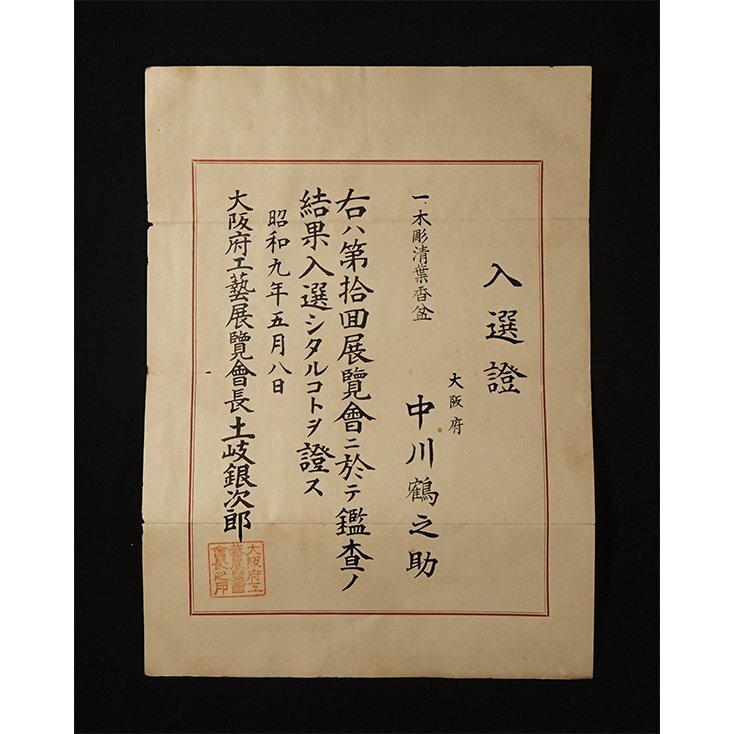 入選證
大阪府
中川鶴之助
一、木彫清葉香盆
右ハ第拾回展覽會ニ於テ鑑査ノ
結果入選シタルコトヲ證ス
昭和九年五月八日
大阪府工藝展覽會長土岐銀次郎
大阪府工
藝展覽會
會長之印